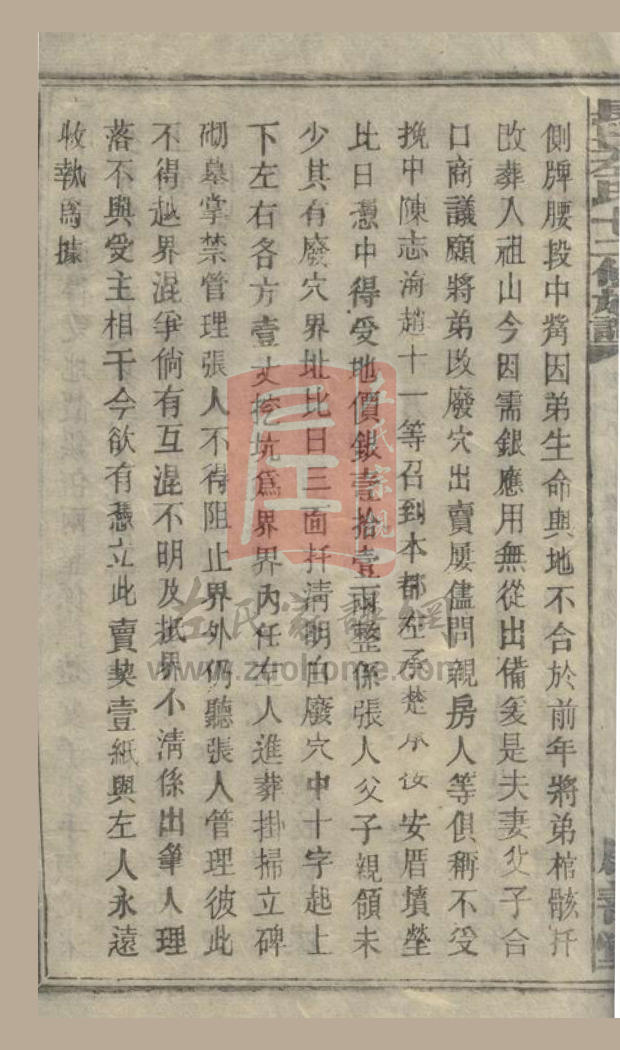 側牌腰段中嵴因弟生命與地不合於前年將弟棺骸扦
改葬人祖山今因需銀應用無從出備爰是夫妻父子合
口商議願將弟改廢穴出賣屢儘問親房人等俱稱不受
挽中陳志海趙十一等召到本都左承楚承 安厝墳塋
比日憑中得受地價銀壹拾壹兩整係張人父子親領未
少其有廢穴界址比日三面扦清明白廢穴中十字起上
下左右各方壹丈挖坑爲界界內任左人進葬掛掃立碑
砌墓掌禁管理張人不得阻止界外仍聽張人管理彼此
不得越界混爭倘有互混不明及抵界不清係出筆人理
落不與受主相干今欲有憑立此賣契壹紙與左人永遠
收執爲據
左氏宗親
左氏家譜網
www.zuohome.com